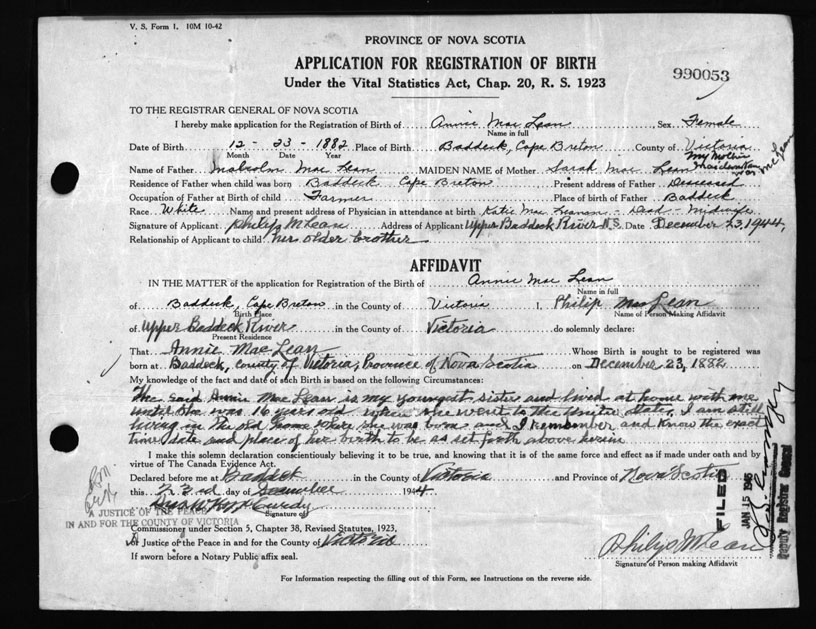 V. S. Form 1. 10M 10-42
PROVINCE OF NOVA SCOTIA
APPLICATION FOR REGISTRATION OF BIRTH
Under the Vital Statistics Act, Chap. 20, R. S. 1923
990053
TO THE REGISTRAR GENERAL OF NOVA SCOTIA
I hereby make application for the Registration of Birth of Annie Mac Lean, Sex Female
Name in full
Date of Birth 12 - 23 - 1882 Place of Birth Baddeck, Cape Breton County of Victoria
Month Date Year
My Mother's maiden name was McLean
Name of Father Malcolm Mac Lean MAIDEN NAME of Mother Sarah Mac Lean
Residence of Father when child was born Baddeck Cape Breton Present address of Father Deceased
Occupation of Father at Birth of child Farmer Place of birth of Father Baddeck
Race White Name and present address of Physician in attendance at birth Katie Mac - Dead - Midwife
Signature of Applicant Philip McLean Address of Applicant Upper Baddeck River N.S. Date December 23, 1944,
Relationship of Applicant to child her older brother
AFFIDAVIT
IN THE MATTER of the application for Registration of the Birth of Annie Mac Lean
Name in full
of Baddeck, Cape Breton in the County of Victoria I, Philip MacLean
Birth Place Name of Person Making Affidavit
of Upper Baddeck River of Victoria do solemnly declare:
Present Residence
That Annie Mac Lean Whose Birth is sought to be registered was
born at Baddeck, County of Victoria, Province of Nova Scotia on December 23, 1882
My knowledge of the fact and date of such Birth is based on the following Circumstances:
The said Annie MacLean is my youngest sister and lived at home with me
until she was 16 years old when she went to the United States, I am still
living in the old home where she was born and I remember and know the exact
time date and place of her birth to be as set forth above herein
I make this solemn declaration conscientiously believing it to be true, and knowing that it is of the same force and effect as if made under oath and by
virtue of The Canada Evidence Act.
Declared before me at Baddeck in the County of Victoria and Province of Nova Scotia
this 23rd day of December 1944.
McCurdy
Signature of
A JUSTICE OF THE PEACE
IN AND FOR THE COUNTY OF VICTORIA
Commissioner under Section 5, Chapter 38, Revised Statutes, 1923,
or Justice of the Peace in and for the County of Victoria
If sworn before a Notary Public affix seal.
Philip McLean
Signature of Person making Affidavit
FILED
JAN 15 1945
Deputy Registrar General
For Information respecting the filling out of this Form, see Instructions on the reverse side.